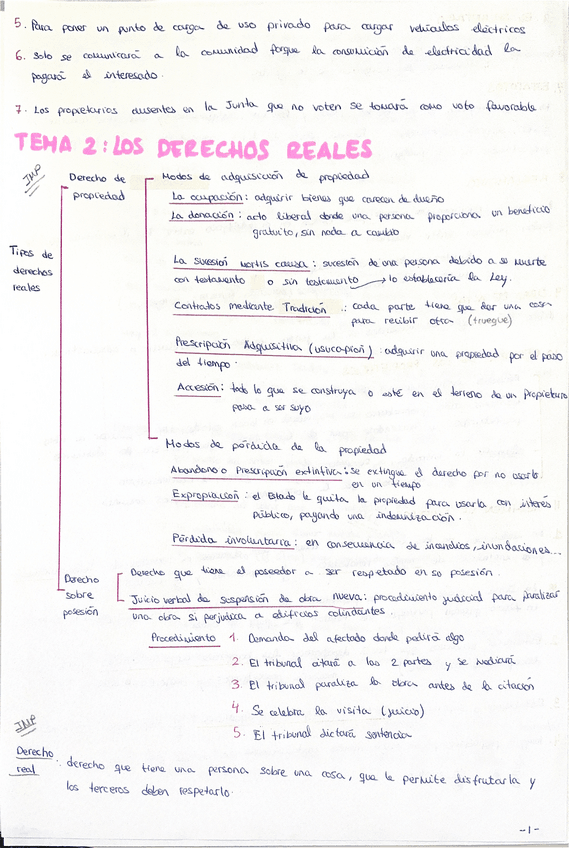 5. Para poner un punto de carga de uso privado para cargar vehículos eléctricos
6. Solo se comunicará a la comunidad porque la consumición de electricidad la
pagará el interesado.
7. Los propietarios ausentes en la Junta que no voten se tomará como voto favorable
TEMA 2: LOS DERECHOS REALES
IMP
Tipos de
derechos
reales
Derecho de
propiedad
Modos de adquisición de propiedad
La ocupación: adquirir bienes que carecen de dueño
La donación: acto liberal donde una persona proporciona un beneficio
gratuito, sin nada a cambio
La sucesión mortis causa: sucesión de una persona debido a su muerte
con testamento o sin testamento → lo establecería la Ley.
Contratos mediante Tradición: cada parte tiene que dar una cosa
para recibir otra (trueque)
Prescripción Adquisitiva (usucapión): adquirir una propiedad por el paso
del tiempo.
Accesión: todo lo que se construya o esté en el terreno de un Propietario
pasa a ser suyo
Modos de pérdida de la propiedad
Abandono o Prescripción extintiva: se extingue el derecho por no usarlo
en un tiempo
Expropiación: el Estado le quita la propiedad para usarla con interés
Público, pagando una indemnización.
Pérdida involuntaria: en consecuencia de incendios, inundaciones...
Derecho
sobre
posesión
Derecho que tiene el poseedor a ser respetado en su posesión.
Juicio verbal de suspensión de obra nueva: procedimiento judicial para paralizar
una obra si perjudica a edificios colindantes.
Procedimiento 1. Demanda del afectado donde pedirá algo
2. El tribunal citará a las 2 partes y se mediará
3. El tribunal paraliza la obra antes de la citación
4. Se celebra la visita (juicio)
5. El tribunal dictará sentencia
IMP
Derecho
real : derecho que tiene una persona sobre una cosa, que le permite disfrutarla y
los terceros deben respetarlo.
-1-